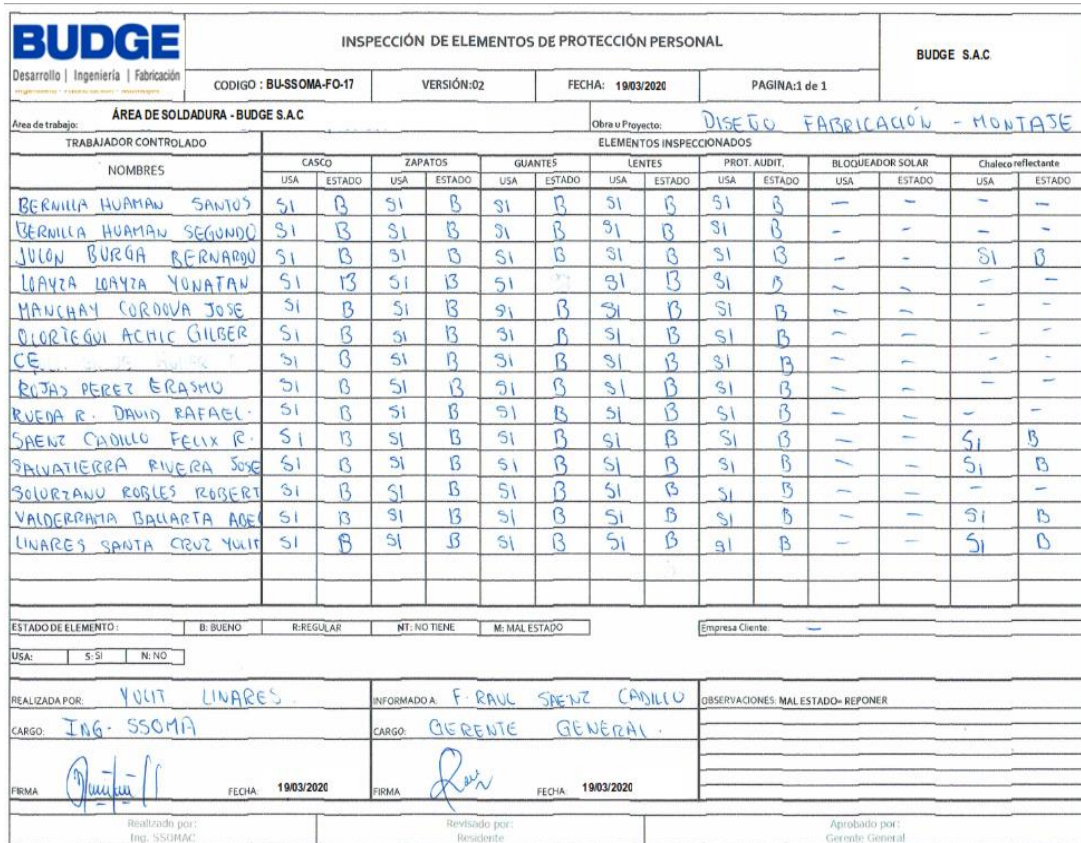 BUDGE
Desarrollo | Ingeniería | Fabricación
INSPECCIÓN DE ELEMENTOS DE PROTECCIÓN PERSONAL
BUDGE S.A.C.
CODIGO : BU-SSOMA-FO-17 VERSIÓN:02 FECHA: 19/03/2020 PAGINA:1 de 1
Area de trabajo: ÁREA DE SOLDADURA - BUDGE S.A.C Obra u Proyecto: DISEÑO FABRICACIÓN - MONTAJE
TRABAJADOR CONTROLADO ELEMENTOS INSPECCIONADOS
NOMBRES CASCO ZAPATOS GUANTES LENTES PROT. AUDIT. BLOQUEADOR SOLAR Chaleco reflectante
USA ESTADO USA ESTADO USA ESTADO USA ESTADO USA ESTADO USA ESTADO USA ESTADO
BERNILLA HUAMAN SANTOS SI B SI B SI B SI B SI B - - - -
BERNILLA HUAMAN SEGUNDO SI B SI B SI B SI B SI B - - - -
JULON BURGA BERNARDO SI B SI B SI B SI B SI B - - SI B
LOAYZA LOAYZA YONATAN SI B SI B SI SI B SI B - - - -
MANCHAY CORDOVA JOSE SI B SI B SI B SI B SI B - - - -
OLORTEGUI ACHIC GILBER SI B SI B SI B SI B SI B - - - -
CE SI B SI B SI B SI B SI B - - - -
ROJAS PEREZ ERASMO SI B SI B SI B SI B SI B - - - -
RUEDA R. DAVID RAFAEL. SI B SI B SI B SI B SI B - - - -
SAENZ CADILLO FELIX R. SI B SI B SI B SI B SI B - - SI B
SALVATIERRA RIVERA JOSE SI B SI B SI B SI B SI B - - SI B
SOLORZANO ROBLES ROBERT SI B SI B SI B SI B SI B - - - -
VALDERRAMA BALLARTA ADE SI B SI B SI B SI B SI B - - SI B
LINARES SANTA CRUZ YULIT SI B SI B SI B SI B SI B - - SI B
ESTADO DE ELEMENTO : B: BUENO R:REGULAR NT: NO TIENE M: MAL ESTADO Empresa Cliente: -
USA: S: SI N: NO
REALIZADA POR: YULIT LINARES. INFORMADO A: F. RAUL SAENZ CADILLO OBSERVACIONES: MAL ESTADO= REPONER
CARGO: ING. SSOMA CARGO: GERENTE GENERAL.
FIRMA FECHA: 19/03/2020 FIRMA FECHA: 19/03/2020
Realizado por: Revisado por: Aprobado por:
Ing. SSOMAC Residente Gerente General